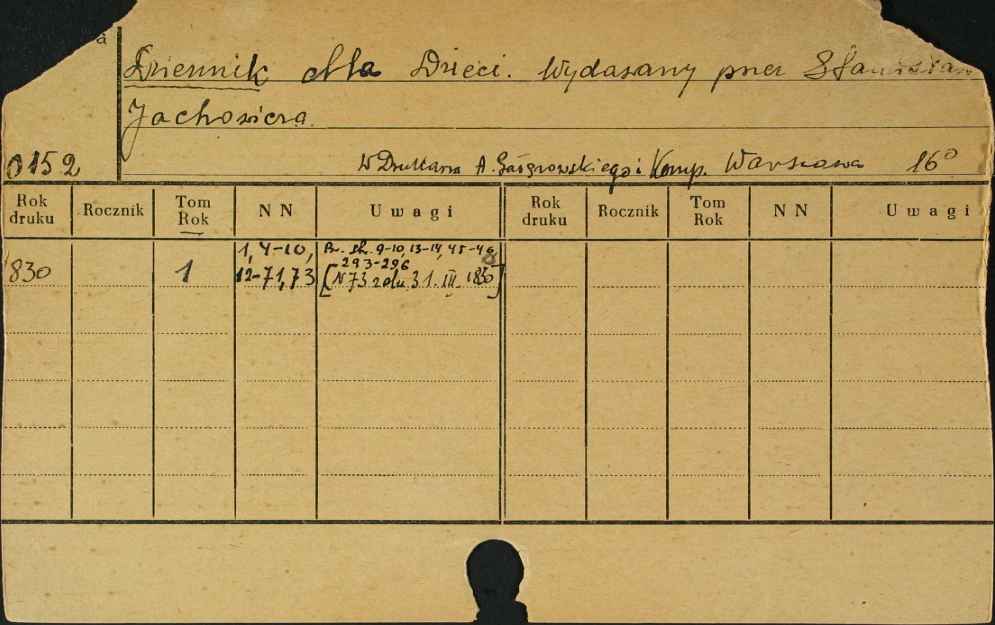 a
Dziennik dla Dzieci. Wydawany przez Stanisława
Jachowicza.
0152 W Drukarni A. Gałęzowskiego i Komp. Warszawa 16°
Rok druku Rocznik Tom Rok N N Uwagi Rok druku Rocznik Tom Rok N N Uwagi
1, 4-10, Br. 9-10, 13-14, 45-46
293-296
830 1 12-71, 73 [N 73 z dn. 31. III. 1830]